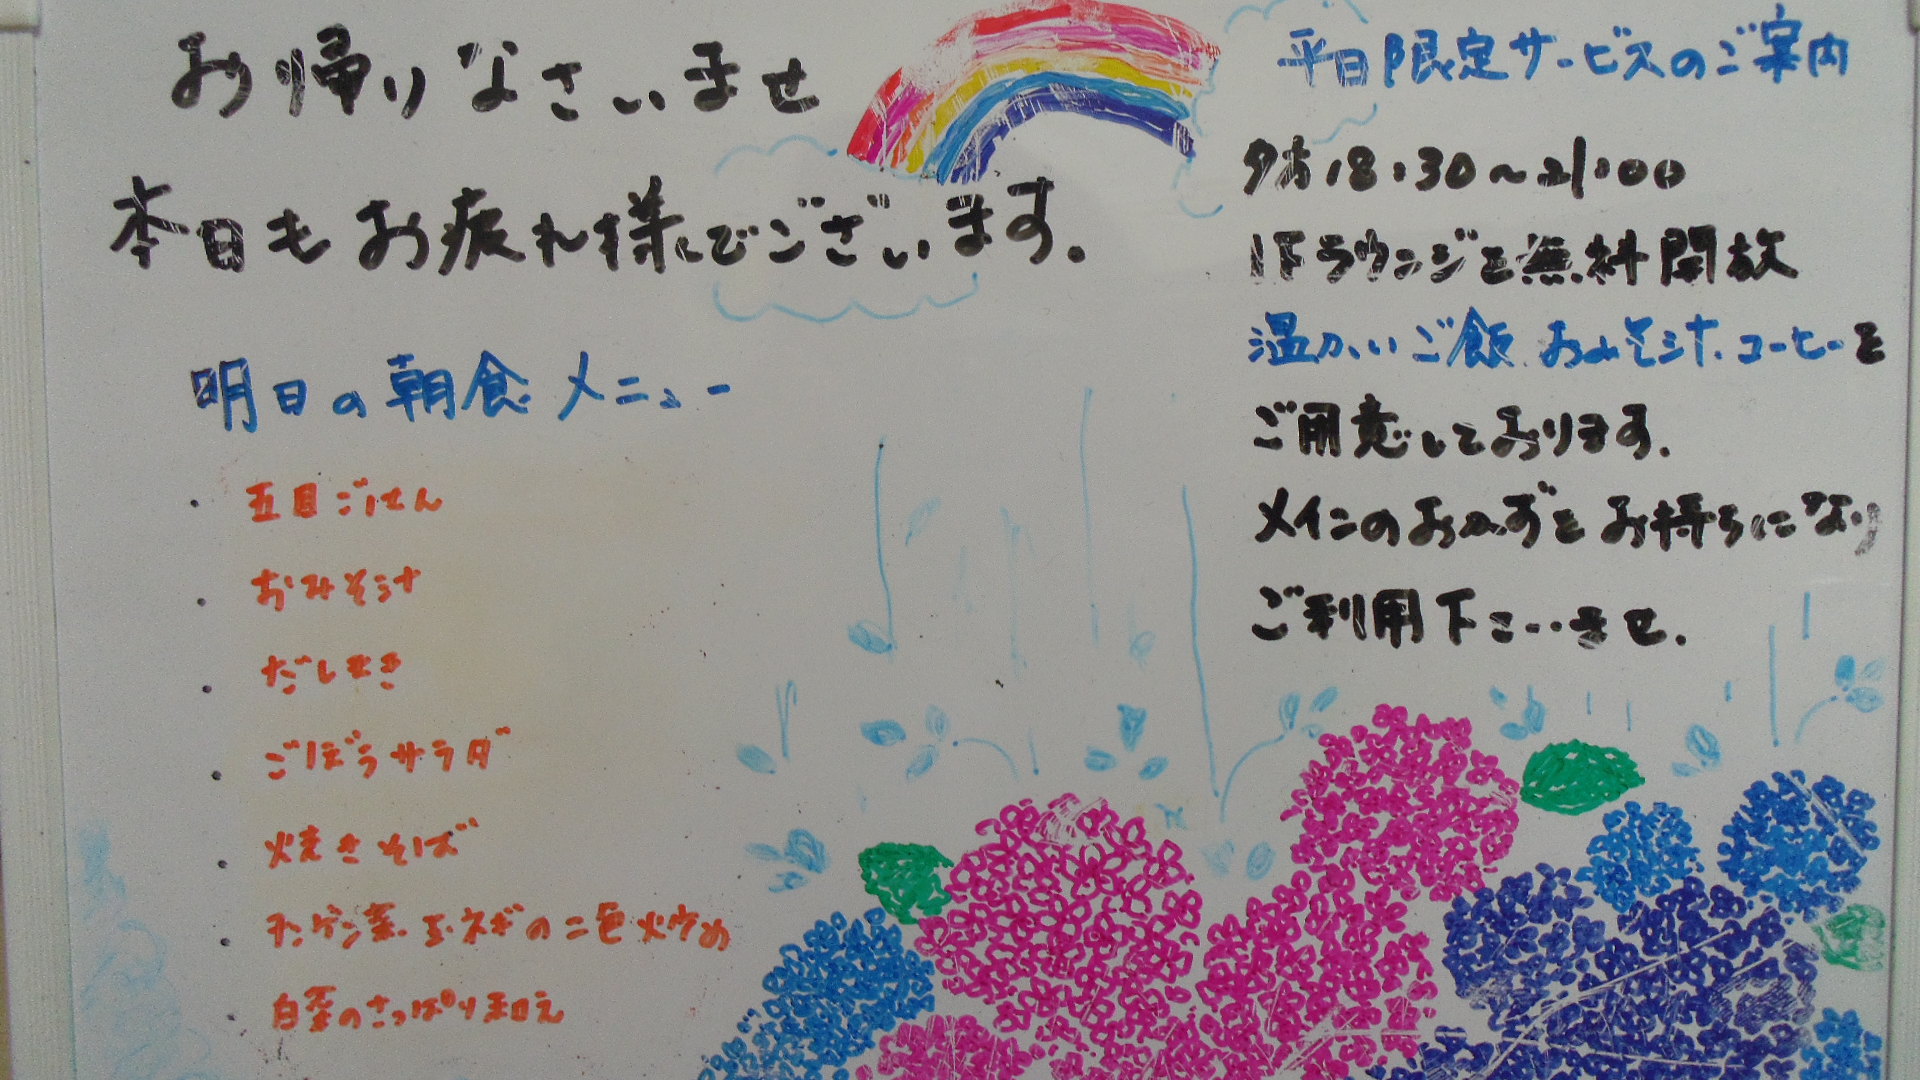 お帰りなさいませ
本日もお疲れ様でございます。
明日の朝食メニュー
・五目ごはん
・おみそ汁
・だしまき
・ごぼうサラダ
・焼きそば
・チンゲン菜・玉ネギの二色炒め
・白菜のさっぱり和え
平日限定サービスのご案内
夕方18:30〜21:00
1Fラウンジを無料開放
温かいご飯、おみそ汁、コーヒーを
ご用意しております。
メインのおかずをお持ちになり
ご利用下さいませ。